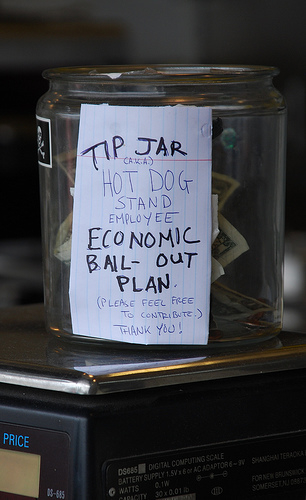 TIP JAR
(A.K.A)
HOT DOG
STAND
EMPLOYEE
ECONOMIC
BAIL-OUT
PLAN.
(PLEASE FEEL FREE
TO CONTRIBUTE.)
THANK YOU!
PRICE
DS-685
DS685 DIGITAL COMPUTING SCALE
BATTERY SUPPLY 1.5V x 6 or AC ADAPTOR 6 - 9V
WATTS 0.1W
CAPACITY 30 x 0.01 lb
SHANGHAI TERAOKA